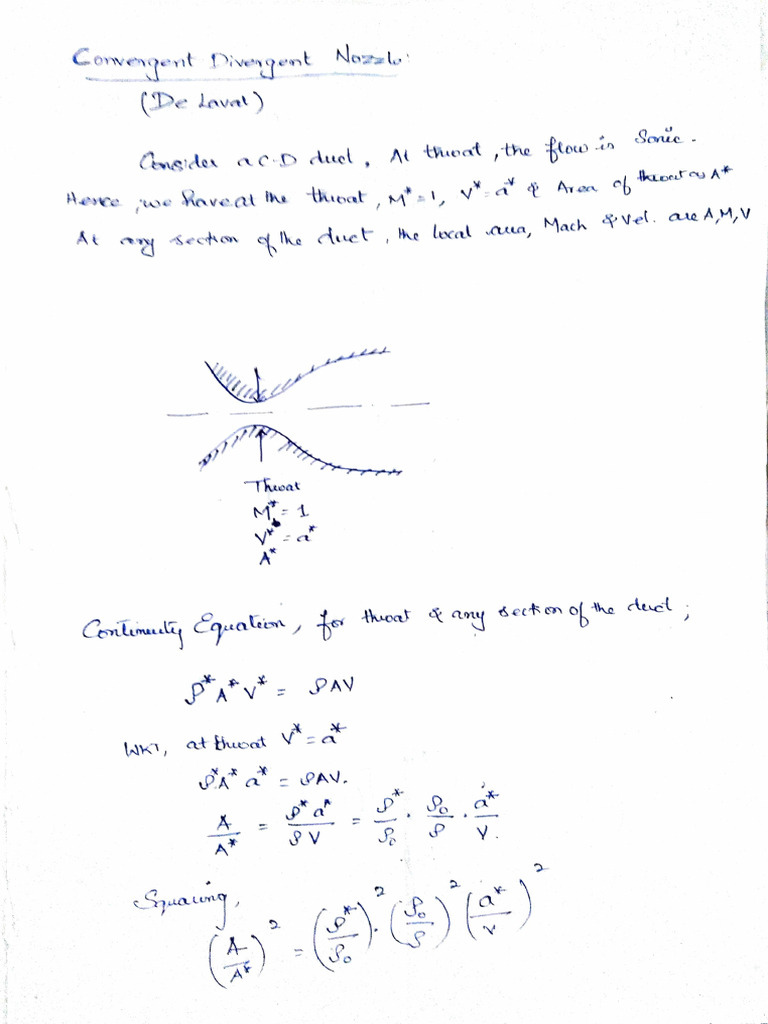 Convergent Divergent Nozzle:
(De Laval)
Consider a C-D duct. At throat, the flow is Sonic.
Hence, we have at the throat, M* = 1, V* = a* & Area of throat as A*
At any section of the duct, the local area, Mach & Vel. are A, M, V
Throat
M* = 1
V* = a*
A*
Continuity Equation, for throat & any section of the duct;
ρ* A* V* = ρAV
WKT, at throat V* = a*
ρ* A* a* = ρAV.
A/A* = ρ* a*/ρV = ρ*/ρ₀ · ρ₀/ρ · a*/V.
Squaring,
(A/A*)² = (ρ*/ρ₀)² · (ρ₀/ρ)² (a*/V)²